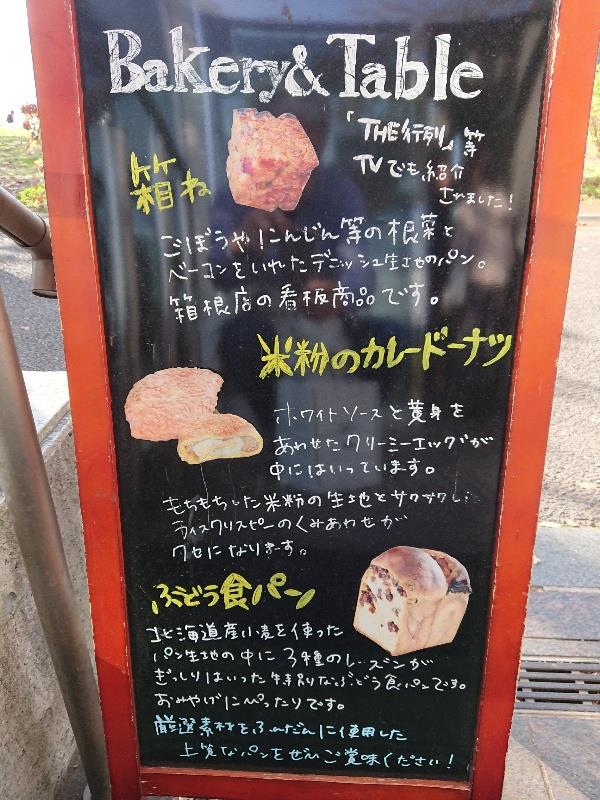 Bakery & Table
「THE行列」等
TVでも紹介
されました！
箱ね
ごぼうやにんじん等の根菜と
ベーコンをいれたデニッシュ生地のパン。
箱根店の看板商品です。
米粉のカレードーナツ
ホワイトソースと黄身を
あわせたクリーミーエッグが
中にはいっています。
もちもちした米粉の生地とサクサクした
ライスクリスピーのくみあわせが
クセになります。
ぶどう食パン
北海道産小麦を使った
パン生地の中に3種のレーズンが
ぎっしりはいった特別なぶどう食パンです。
おみやげにぴったりです。
厳選素材をふんだんに使用した
上質なパンをぜひご賞味ください！